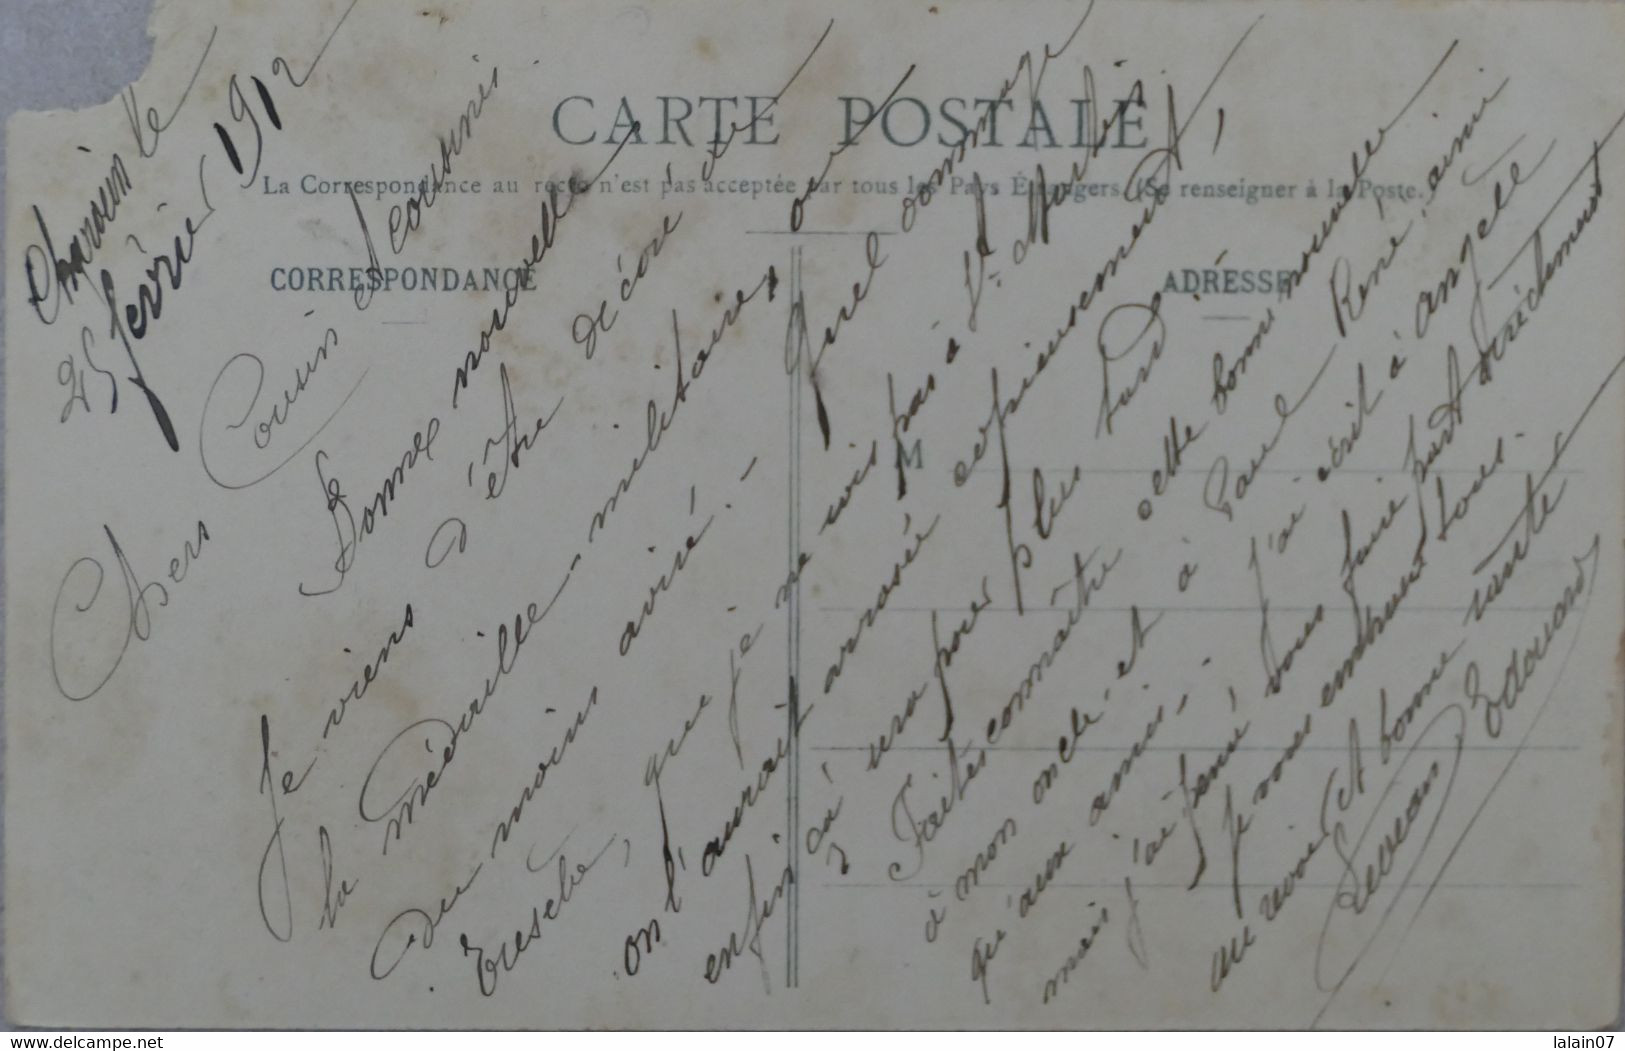 CARTE POSTALE
La Correspondance au recto n'est pas acceptée par tous les Pays Étrangers. (Se renseigner à la Poste.)
CORRESPONDANCE
ADRESSE
M
le
25 février 1912
Chers Cousin et Cousines
Bonnes nouvelles
Je viens d'être décoré de
la médaille-militaire, ou
du moins avisé. - Quel dommage
que je ne sois pas à St. Martin
on l'aurait arrosée copieusement,
enfin ça sera pour plus tard.
Faites connaître cette bonne nouvelle
à mon oncle et à Paul René, ainsi
qu'aux amis. - J'ai écrit à Angèle
mais j'ai pensé vous faire part directement
Je vous embrasse tous.
au revoir et bonne santé
Edouard
lalain07